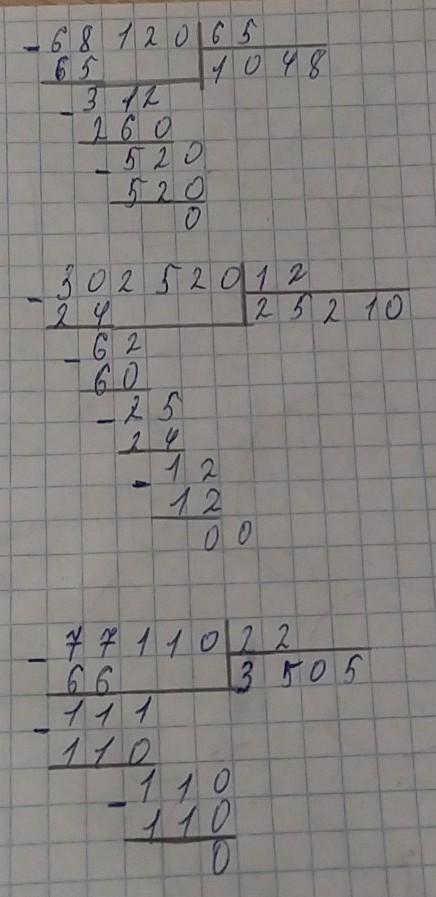 - 68120 65
65 1048
- 312
260
- 520
520
0
- 302520 12
24 25210
- 62
60
- 25
24
- 12
12
00
- 77110 22
66 3505
- 111
110
- 110
110
0